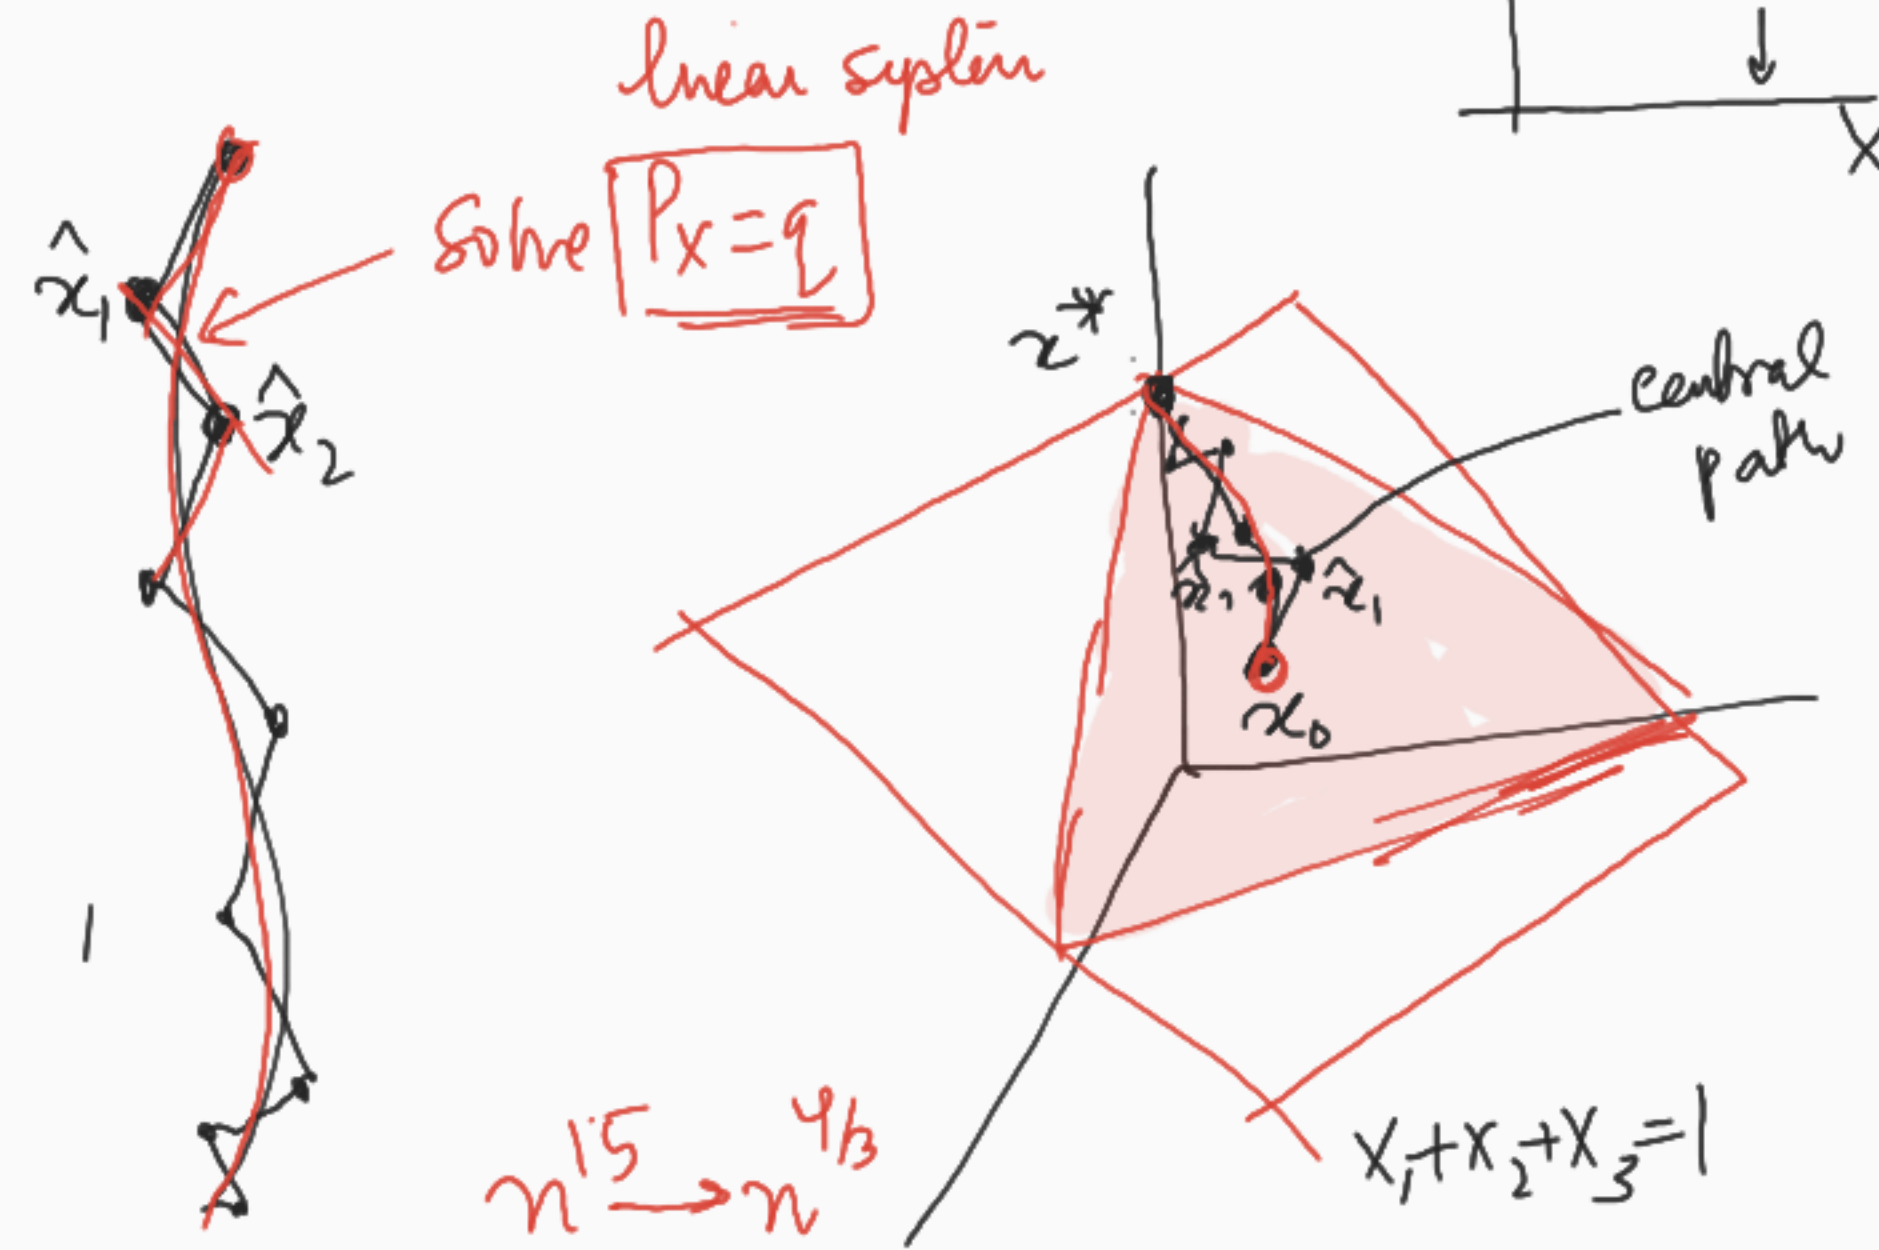 linear system
solve Px=q
x̂₁
x̂₂
x*
central
path
x̂₁
x₀
n^1.5 → n^4/3
x₁+x₂+x₃=1
x